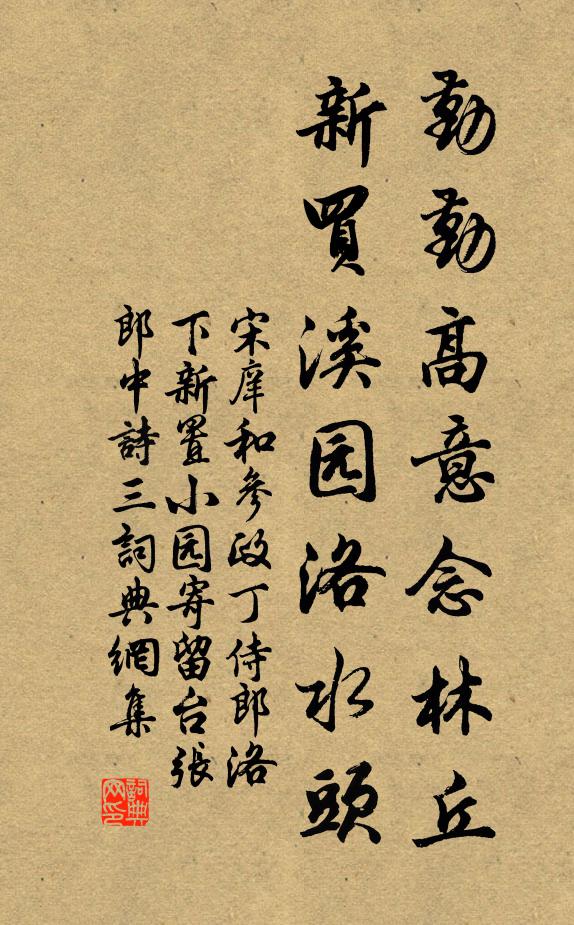 勤勤高意念林丘
新買溪园洛水頭
宋庠和參政丁侍郎洛
下新置小园寄留台張
郎中詩三詞典網集
詞典网印